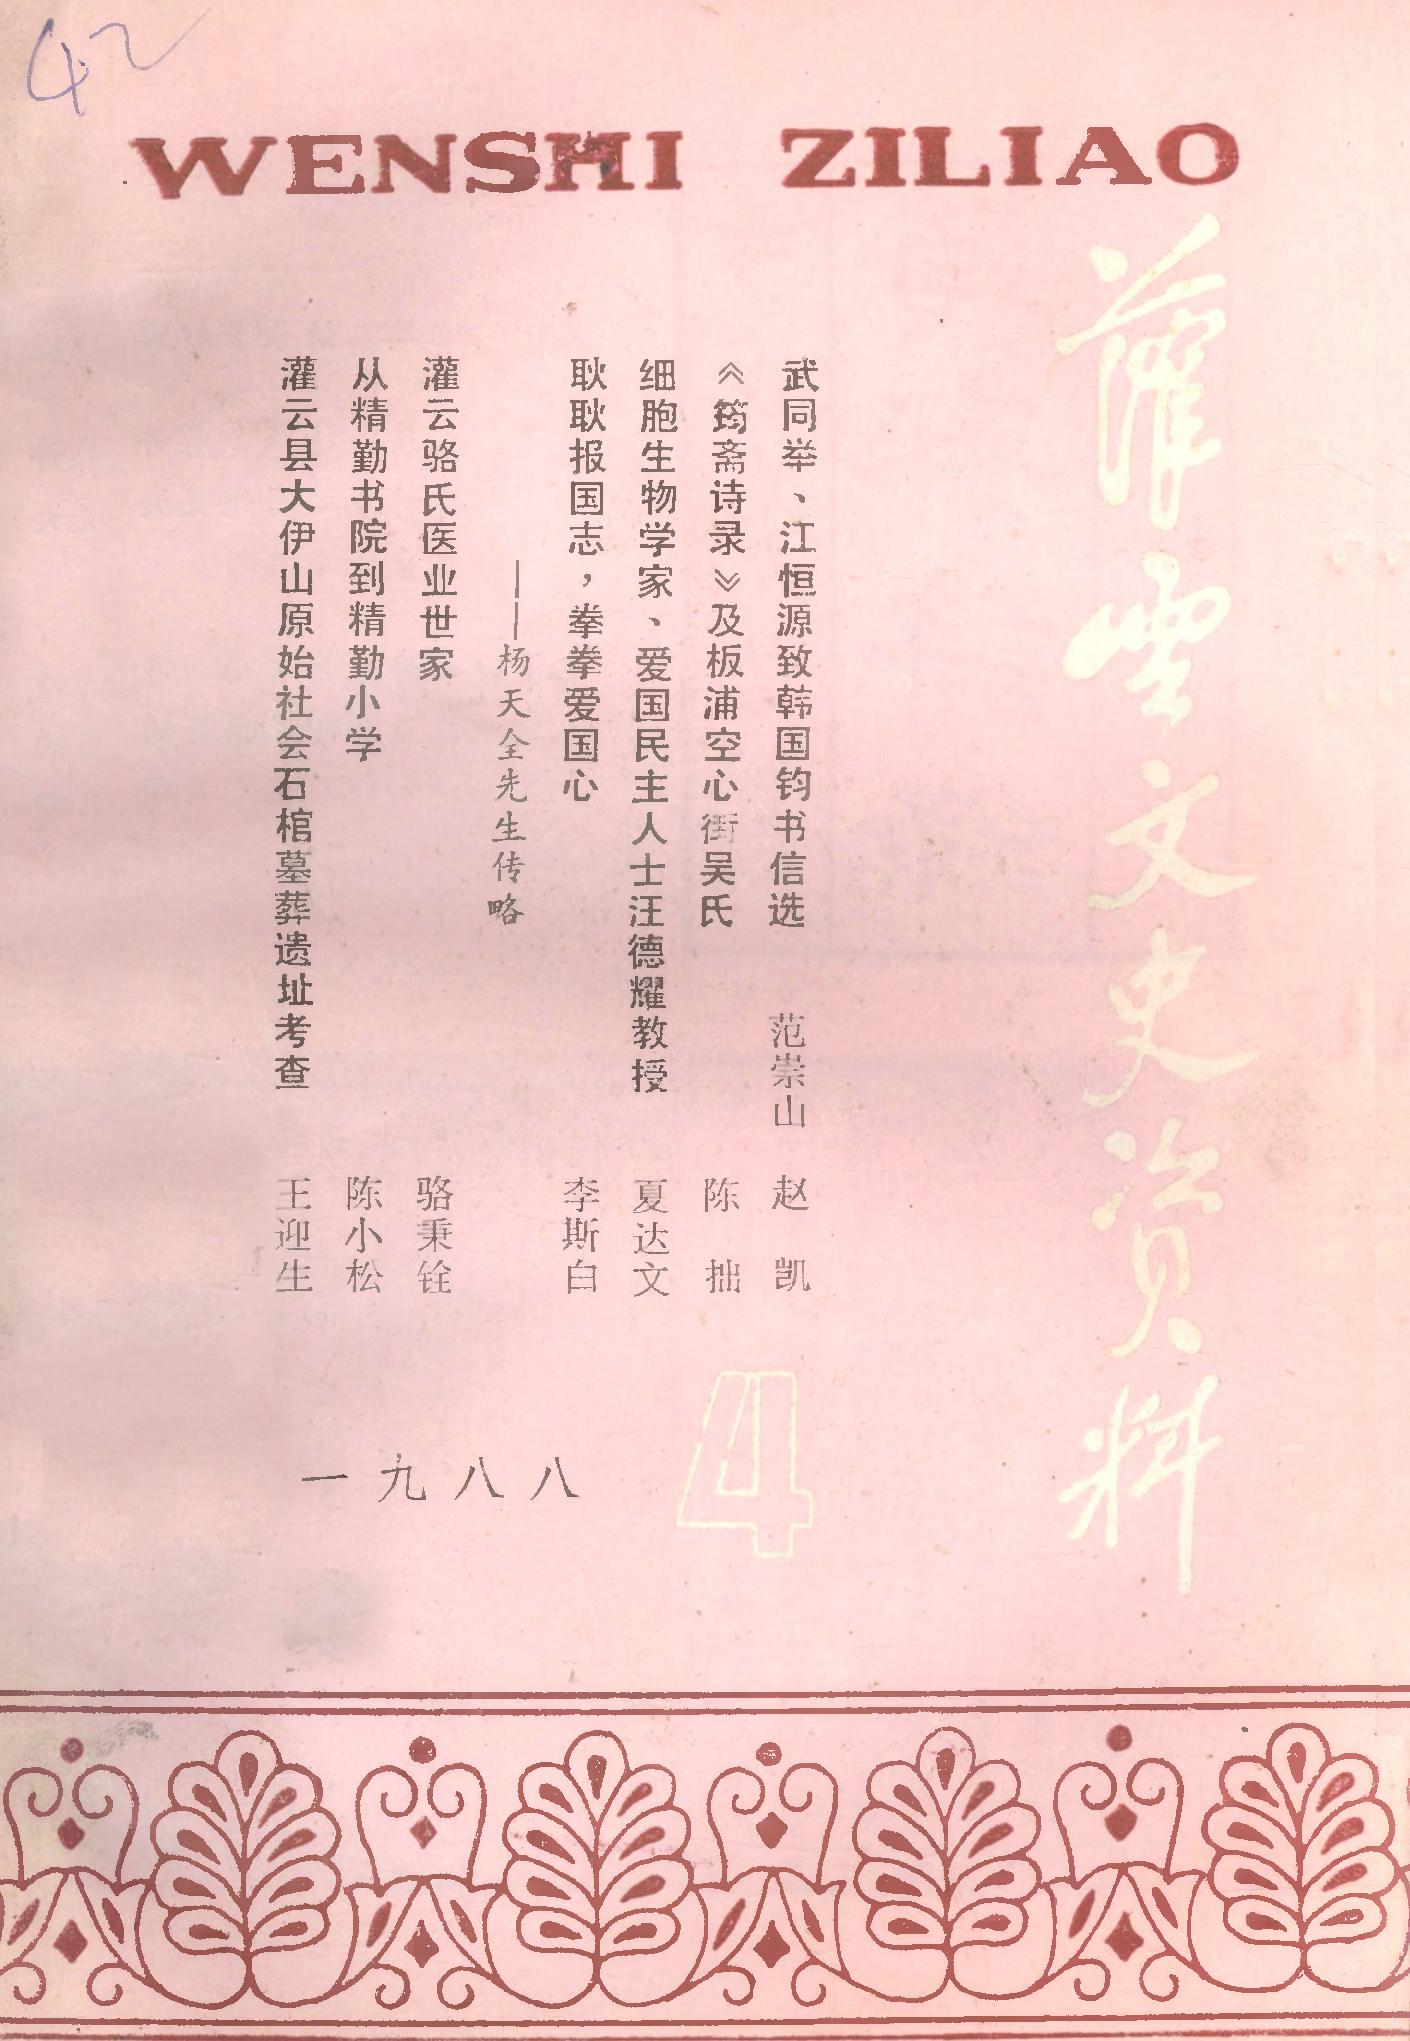 42
WENSHI ZILIAO
灌云文史资料
武同举、江恒源致韩国钧书信选 范崇山 赵凯
《筠斋诗录》及板浦空心街吴氏 陈拙
细胞生物学家、爱国民主人士汪德耀教授 夏达文
耿耿报国志，拳拳爱国心 李斯白
——杨天全先生传略
灌云骆氏医业世家 骆秉铨
从精勤书院到精勤小学 陈小松
灌云县大伊山原始社会石棺墓葬遗址考查 王迎生
4
一九八八